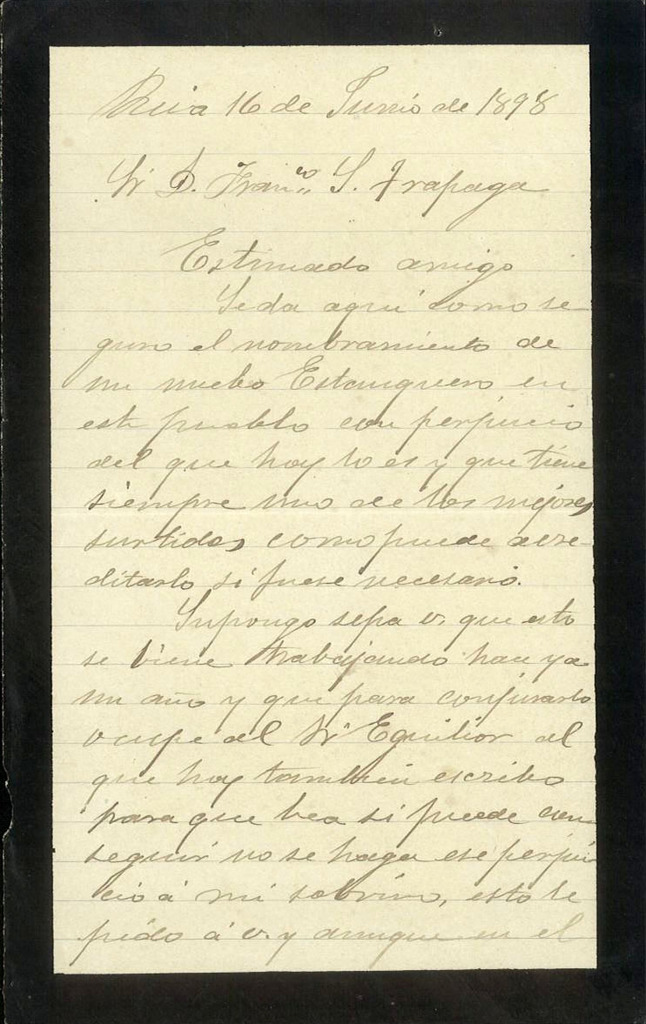 16 de Junio de 1898
Sr D. Fran.co S. Trapaga
Estimado amigo
Se da aquí como se-
guro el nombramiento de
un nuebo Estanquero en
este pueblo con perjuicio
del que hoy lo es y que tiene
siempre uno de los mejores
surtidos como puede acre-
ditarlo si fuese necesario.
Supongo sepa v. que esto
se biene trabajando hace ya
un año y que para conjurarlo
ocupe al Sr Eguilior al
que hoy tambien escribo
para que bea si puede con
seguir no se haga ese perjui
cio á mi sobrino, esto le
pido á v. y aunque en el